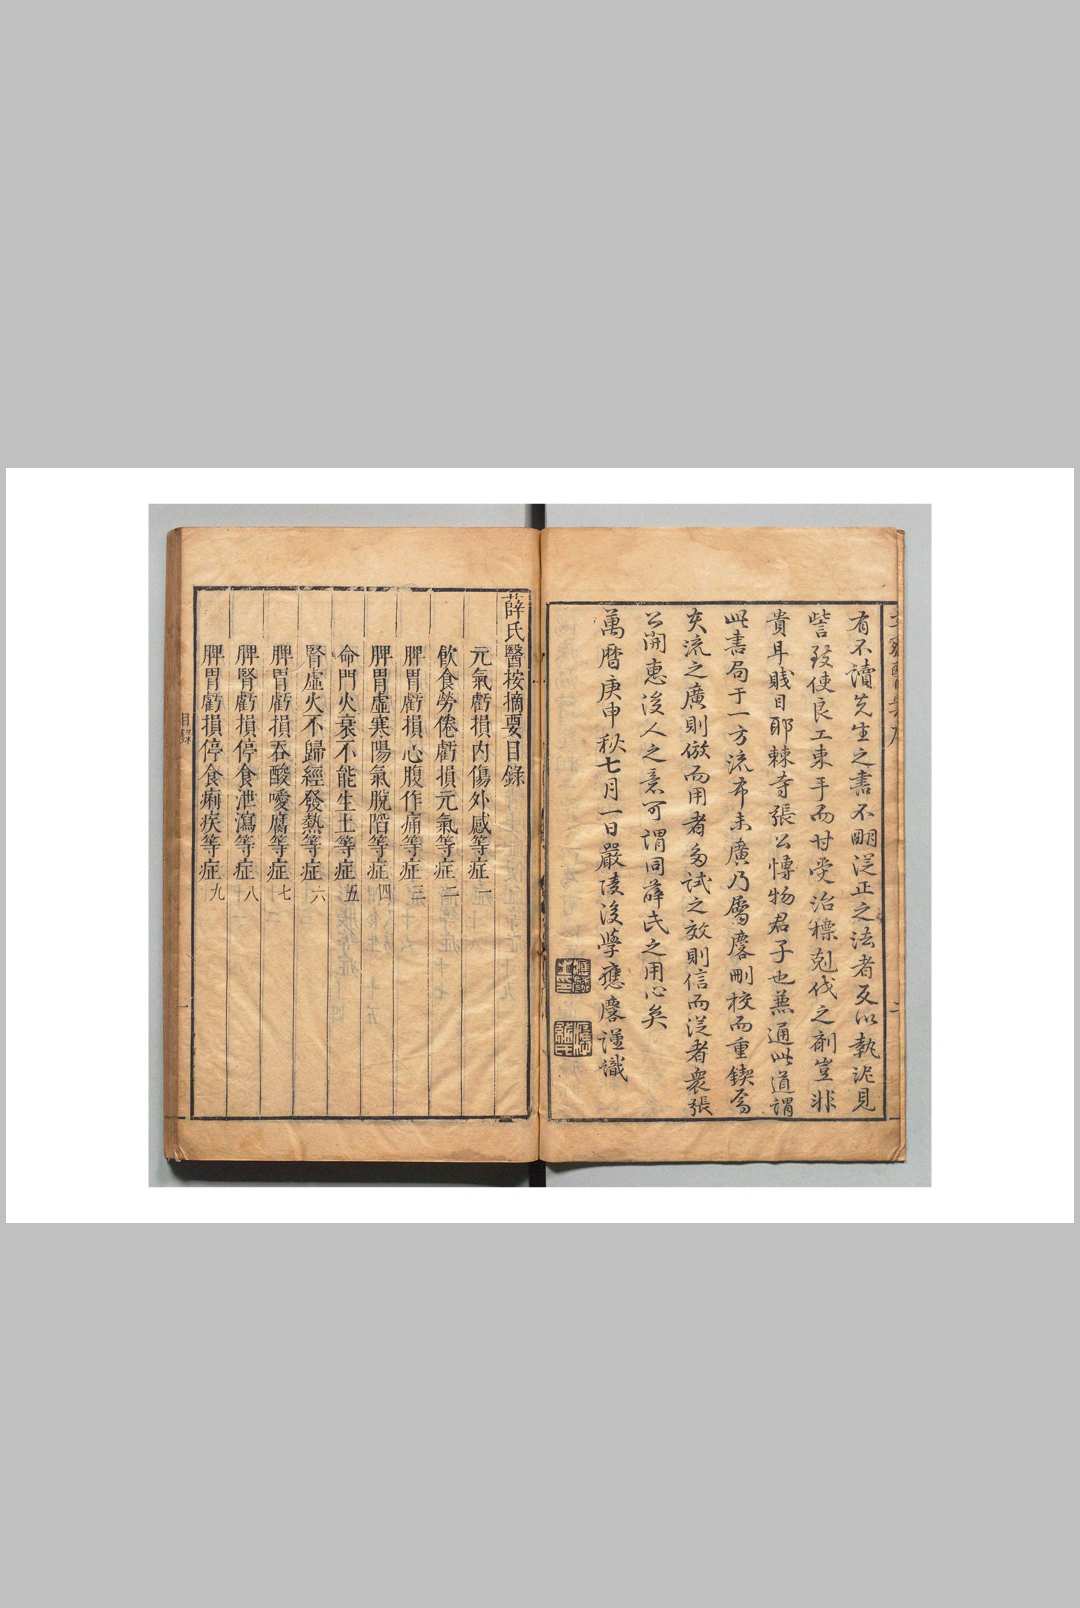 有不讀先生之書不明從正之法者反以執泥見
訾致使良工束手而甘受治標剋伐之劑豈非
貴耳賤目耶棘寺張公博物君子也兼通此道謂
此書局于一方流布未廣乃屬麐刪校而重鍥焉
夫流之廣則倣而用者多試之效則信而從者衆張
公開惠後人之意可謂同薛氏之用心矣
萬曆庚申秋七月一日嚴陵後學應麐謹識
薛氏醫按摘要目錄
元氣虧損內傷外感等症一
飲食勞倦虧損元氣等症二
脾胃虧損心腹作痛等症三
脾胃虛寒陽氣脫陷等症四
命門火衰不能生土等症五
腎虛火不歸經發熱等症六
脾胃虧損吞酸噯腐等症七
脾腎虧損停食泄瀉等症八
脾胃虧損停食痢疾等症九
目錄
一